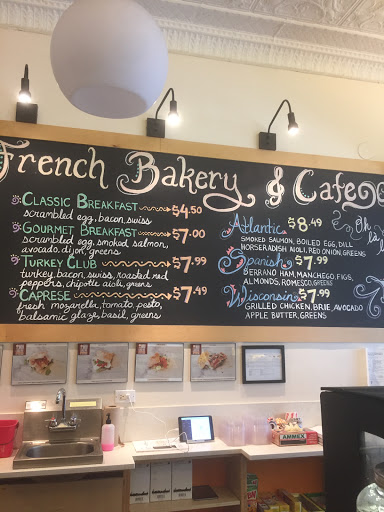 French Bakery & Cafe
CLASSIC BREAKFAST $4.50
scrambled egg, bacon, swiss
GOURMET BREAKFAST $7.00
scrambled egg, smoked salmon,
avocado, dijon, greens
TURKEY CLUB $7.99
turkey, bacon, swiss, roasted red
peppers, chipotle aioli, greens
CAPRESE $7.49
fresh mozarella, tomato, pesto,
balsamic glaze, basil, greens
Atlantic $8.49
SMOKED SALMON, BOILED EGG, DILL
HORSERADISH AIOLI, RED ONION, GREENS
Spanish $7.99
SERRANO HAM, MANCHEGO, FIGS,
ALMONDS, ROMESCO, GREENS
Wisconsin $7.99
GRILLED CHICKEN, BRIE, AVOCADO
APPLE BUTTER, GREENS
Oh
AMMEX